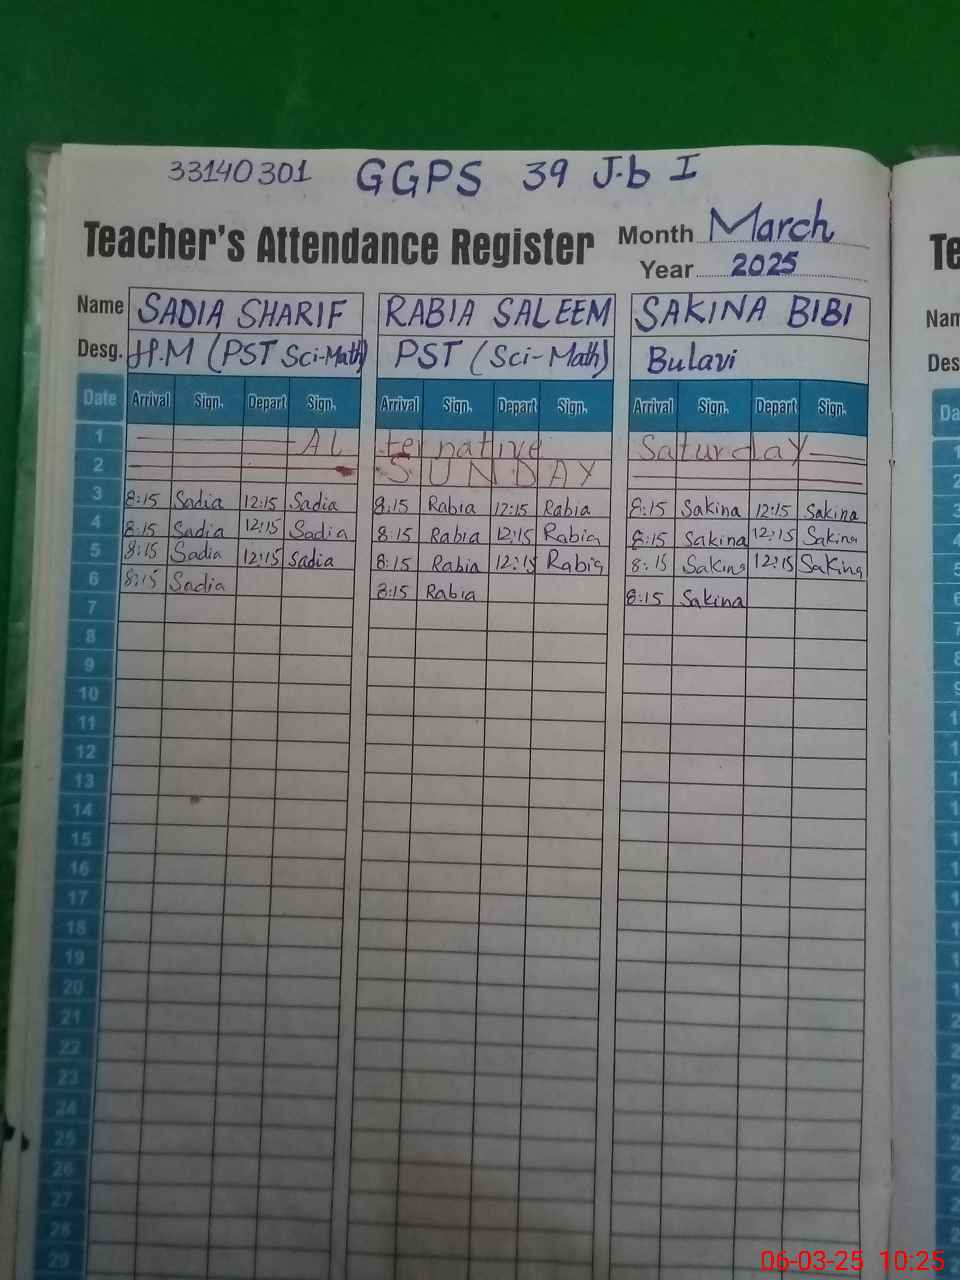 33140301 GGPS 39 J.b I
Teacher's Attendance Register Month March
Year 2025
Name SADIA SHARIF RABIA SALEEM SAKINA BIBI
Desg. H.M (PST Sci-Math) PST (Sci-Math) Bulavi
Date Arrival Sign. Depart Sign. Arrival Sign. Depart Sign. Arrival Sign. Depart Sign.
1 AL ternative Saturday
2 SUNDAY
3 8:15 Sadia 12:15 Sadia 8:15 Rabia 12:15 Rabia 8:15 Sakina 12:15 Sakina
4 8:15 Sadia 12:15 Sadia 8:15 Rabia 12:15 Rabia 8:15 Sakina 12:15 Sakina
5 8:15 Sadia 12:15 Sadia 8:15 Rabia 12:15 Rabia 8:15 Sakina 12:15 Sakina
6 8:15 Sadia 8:15 Rabia 8:15 Sakina
7
8
9
10
11
12
13
14
15
16
17
18
19
20
21
22
23
24
25
26
27
28
29
06-03-25 10:25